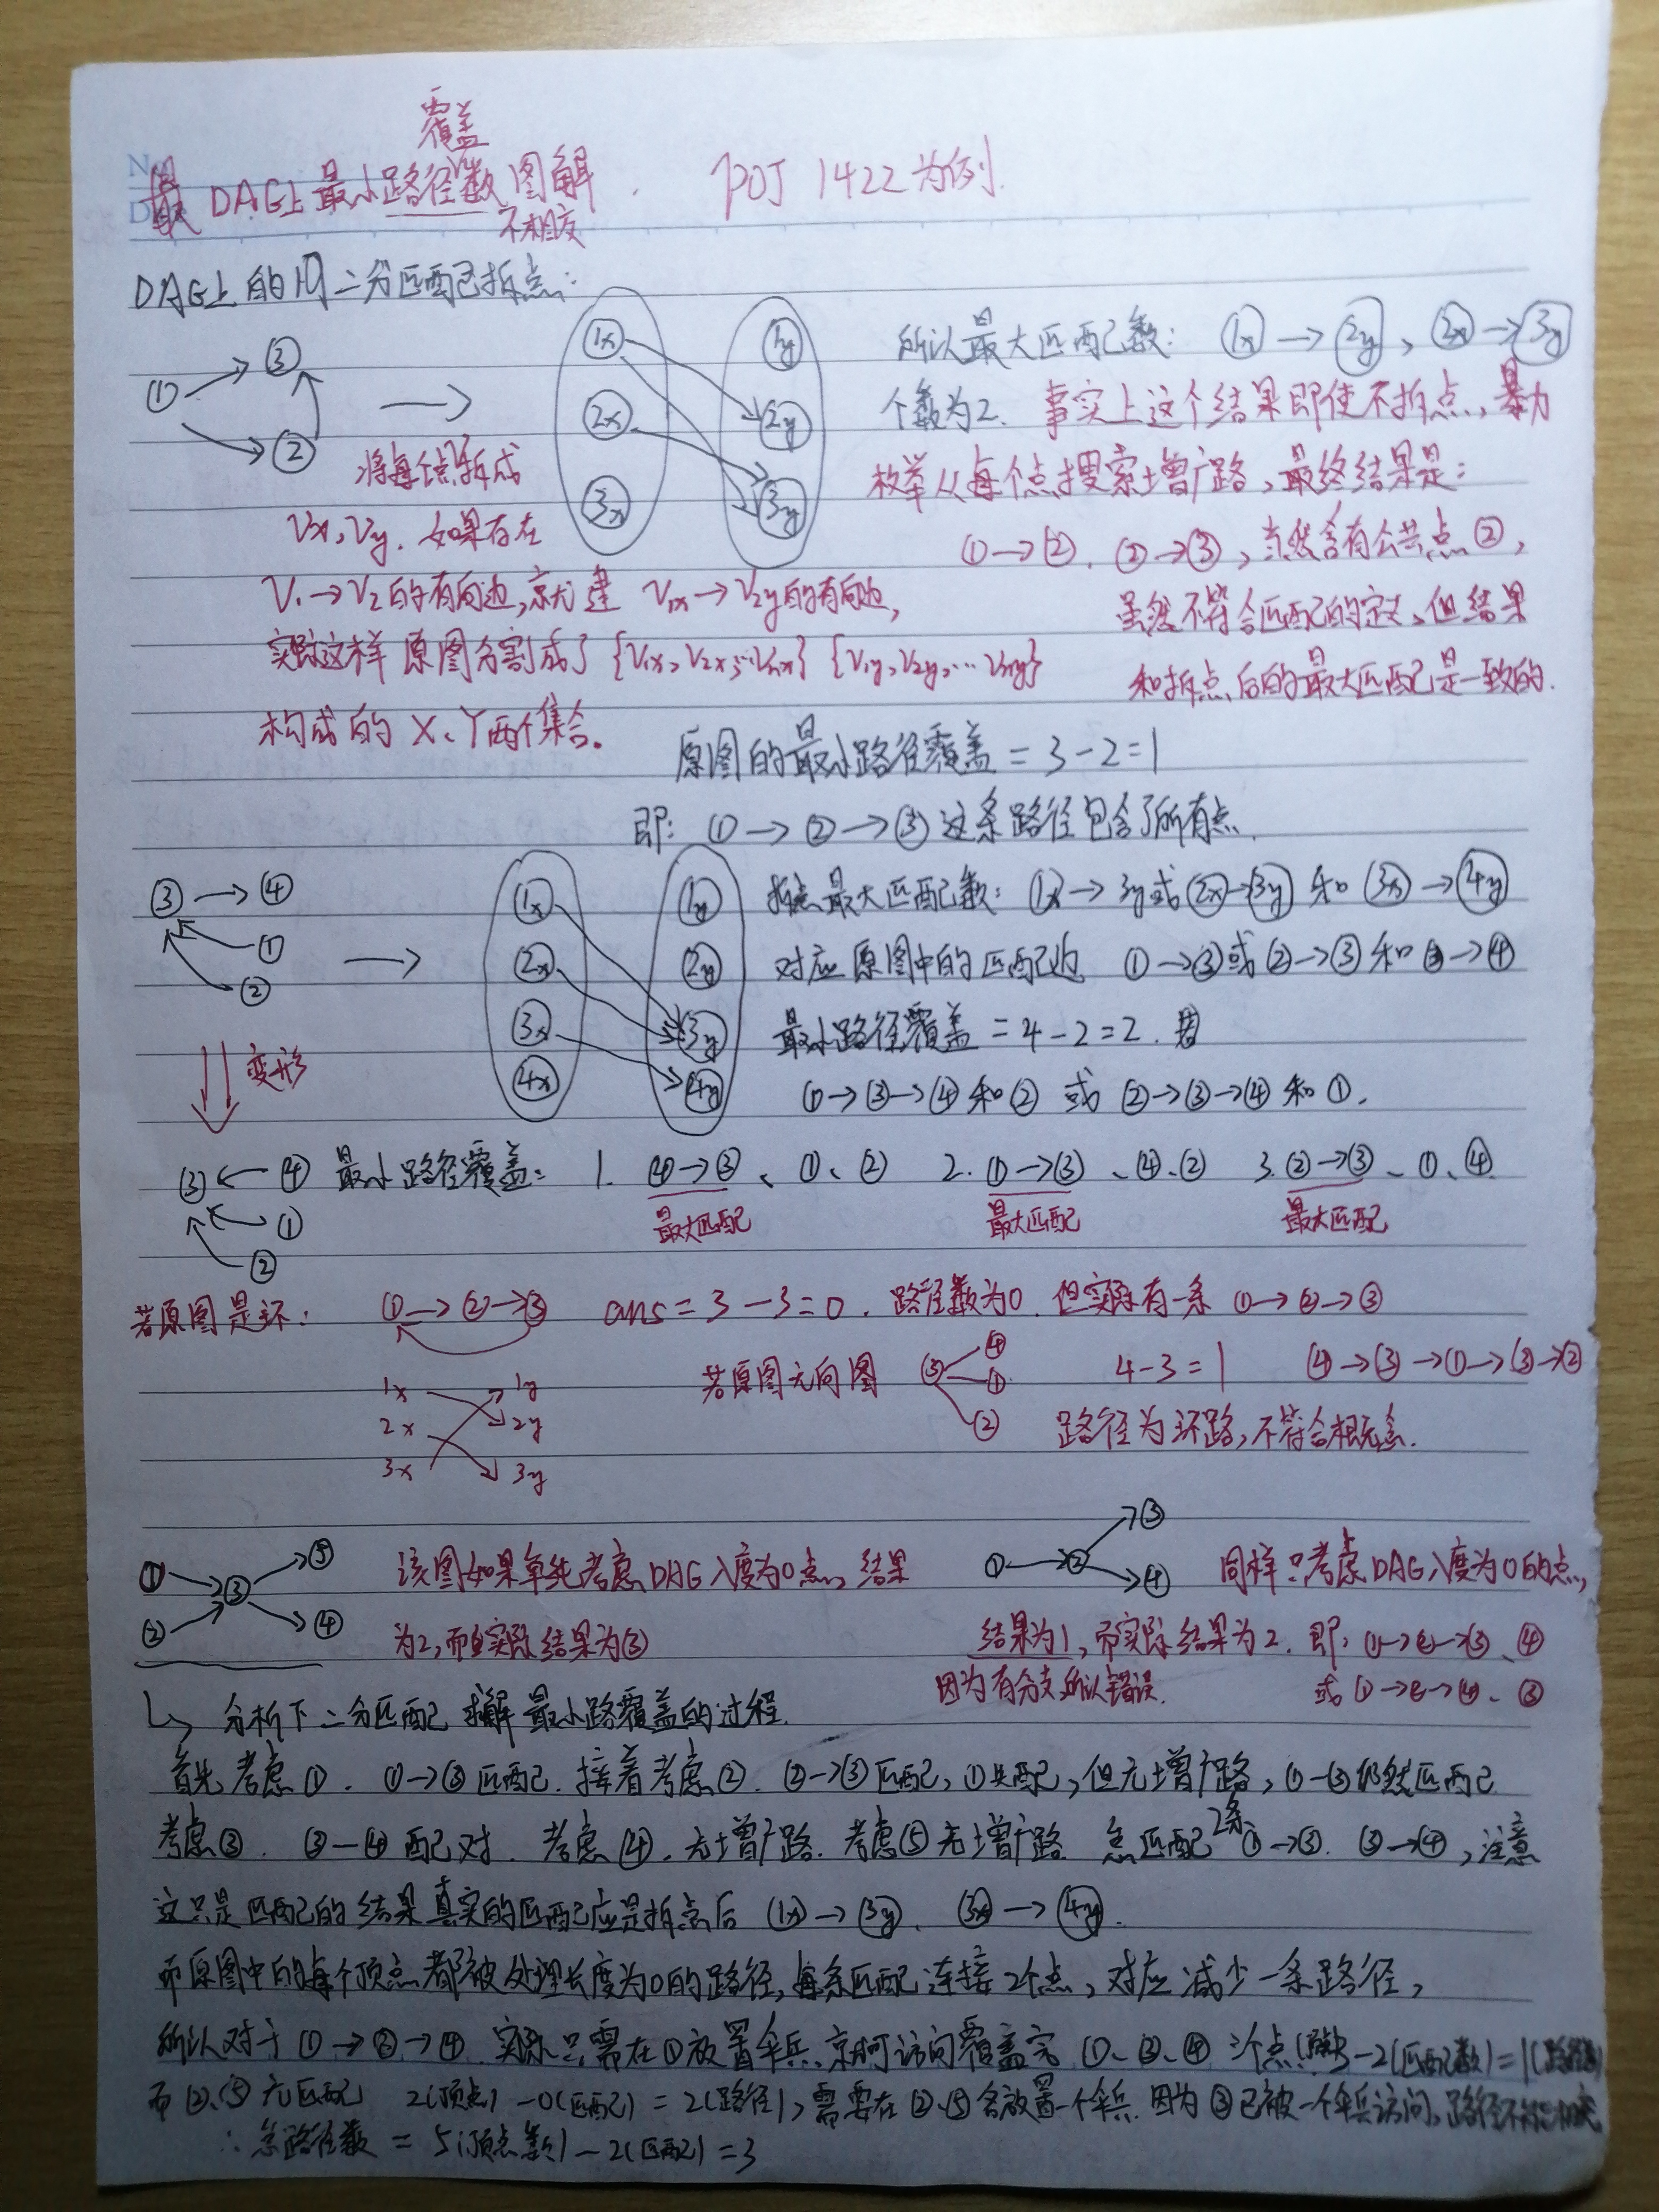 覆盖
DAG上最小路径数图解. POJ 1422为例.
不相交
DAG上的用二分匹配拆点:
① ③ ②
将每个点拆成
Vx, Vy. 如果存在
V1→V2的有向边,就建 V1x→V2y的有向边,
实际这样原图分割成了{V1x,V2x,…Vnx} {V1y,V2y,…Vny}
构成的 X、Y两个集合。
1x 2x 3x
1y 2y 3y
所以最大匹配数: 1x→2y、2x→3y
个数为2. 事实上这个结果即使不拆点,暴力
枚举从每个点搜索增广路,最终结果是:
①→②. ②→③,当然含有公共点②,
虽然不符合匹配的定义,但结果
和拆点后的最大匹配是一致的.
原图的最小路径覆盖=3-2=1
即: ①→②→③这条路径包含了所有点.
③→④
①
②
1x 2x 3x 4x
1y 2y 3y 4y
拆点最大匹配数: 1x→3y或2x→3y和3x→4y
对应原图中的匹配边 ①→③或②→③和③→④
最小路径覆盖=4-2=2.
①→③→④和② 或 ②→③→④和①.
变形
③←④
①
②
最小路径覆盖: 1. ④→③、①、② 2. ①→③、④、② 3. ②→③、①、④
最大匹配 最大匹配 最大匹配
若原图是环: ①→②→③ ans=3-3=0. 路径数为0. 但实际有一条 ①→②→③
1x 1y
2x 2y
3x 3y
若原图无向图 ③ ④ ① ② 4-3=1 ④→③→①→③→②
路径为环路,不符合概念.
① ② ③ ⑤ ④
该图如果单纯考虑DAG入度为0点,结果
为2,而实际结果为③
① ② ③ ④
同样只考虑DAG入度为0的点,
结果为1,而实际结果为2. 即: ①→②→③、④
因为有分支所以错误. 或①→②→④、③
分析下二分匹配求解最小路覆盖的过程.
首先考虑①. ①→③匹配. 接着考虑②. ②→③匹配,①失配,但无增广路,①-③仍然匹配
考虑③. ③-④配对. 考虑④,无增广路. 考虑⑤无增广路 总匹配2条①→③. ③→④,注意
这只是匹配的结果真实的匹配应是拆点后 1x→3y. 3x→4y.
而原图中的每个顶点都被处理长度为0的路径,每条匹配连接2个点,对应减少一条路径,
所以对于①→③→④ 实际只需在①放置伞兵,就可访问覆盖完①、③、④ 3个点 3-2(匹配数)=1
而②、⑤无匹配 2(顶点)-0(匹配)=2(路径),需要在②、⑤各放置一个伞兵.因为③已被一个伞兵访问,路径不能相交
∴总路径数 = 5(顶点数)-2(匹配)=3